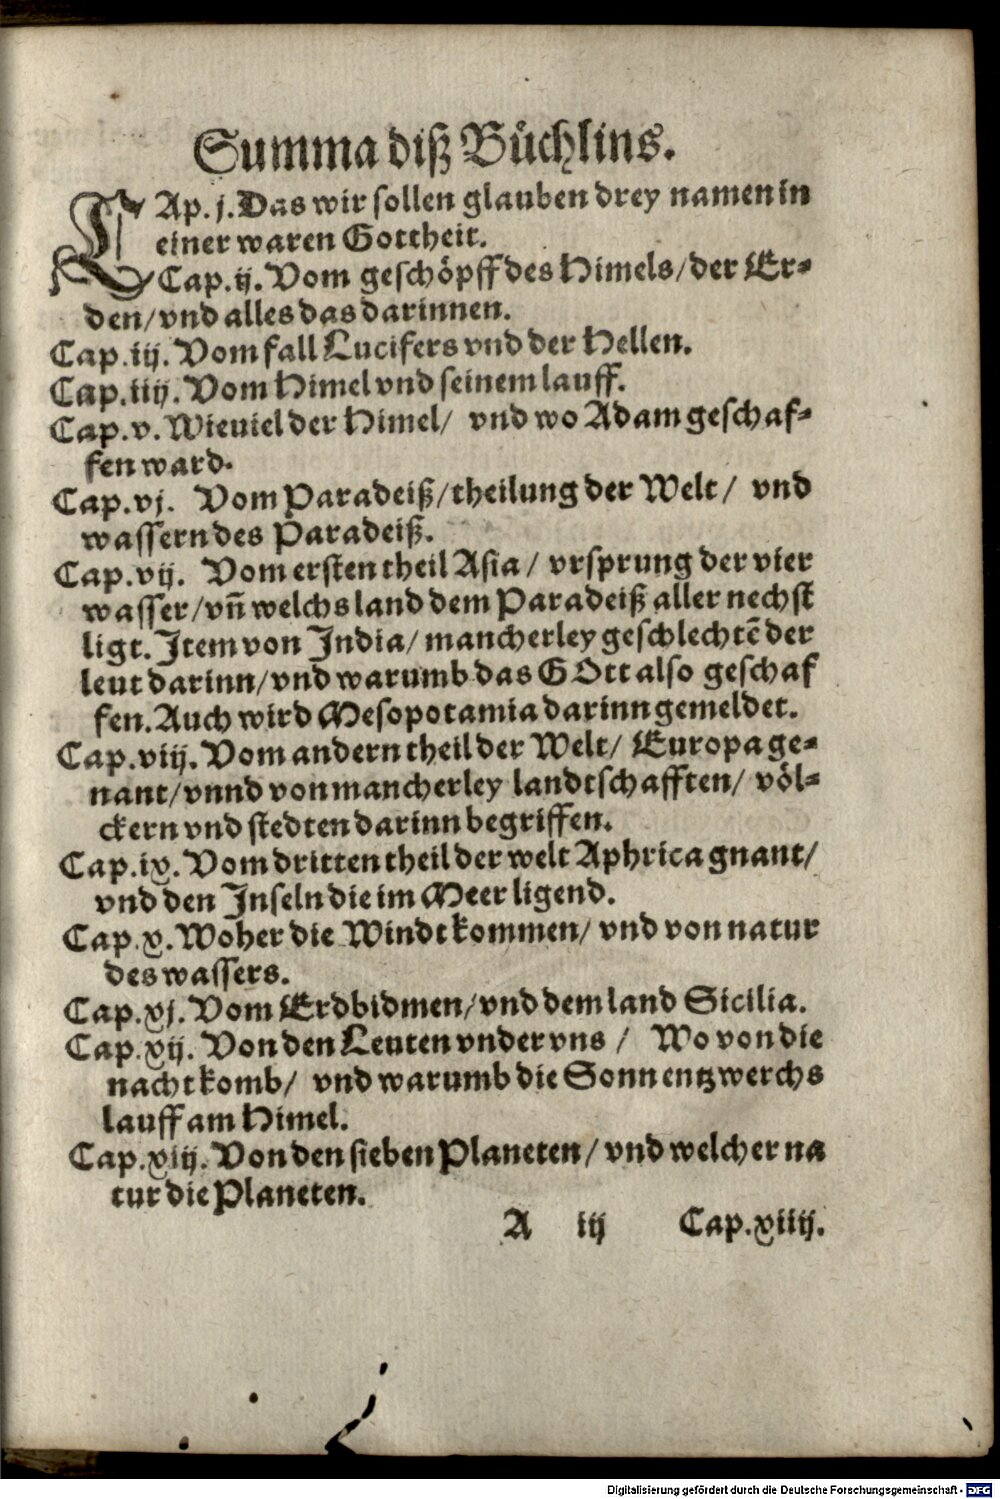 Summa diß Büchlins.
CAp. j. Das wir sollen glauben drey namen in
einer waren Gottheit.
Cap. ij. Vom geschöpff des Himels/ der Er-
den/ vnd alles das darinnen.
Cap. iij. Vom fall Lucifers vnd der Hellen.
Cap. iiij. Vom Himel vnd seinem lauff.
Cap. v. Wieuiel der Himel/ vnd wo Adam geschaf-
fen ward.
Cap. vj. Vom Paradeiß/ theilung der Welt/ vnd
wassern des Paradeiß.
Cap. vij. Vom ersten theil Asia/ vrsprung der vier
wasser/ vñ welchs land dem Paradeiß aller nechst
ligt. Item von India/ mancherley geschlechtē der
leut darinn/ vnd warumb das GOtt also geschaf
fen. Auch wird Mesopotamia darinn gemeldet.
Cap. viij. Vom andern theil der Welt/ Europa ge-
nant/ vnnd von mancherley landtschafften/ völ-
ckern vnd stedten darinn begriffen.
Cap. ix. Vom dritten theil der welt Aphrica gnant/
vnd den Inseln die im Meer ligend.
Cap. x. Woher die Windt kommen/ vnd von natur
des wassers.
Cap. xj. Vom Erdbidmen/ vnd dem land Sicilia.
Cap. xij. Von den Leuten vnder vns/ Wo von die
nacht komb/ vnd warumb die Sonn entzwerchs
lauff am Himel.
Cap. xiij. Von den sieben Planeten/ vnd welcher na
tur die Planeten.
A iij Cap. xiiij.
Digitalisierung gefördert durch die Deutsche Forschungsgemeinschaft - DFG